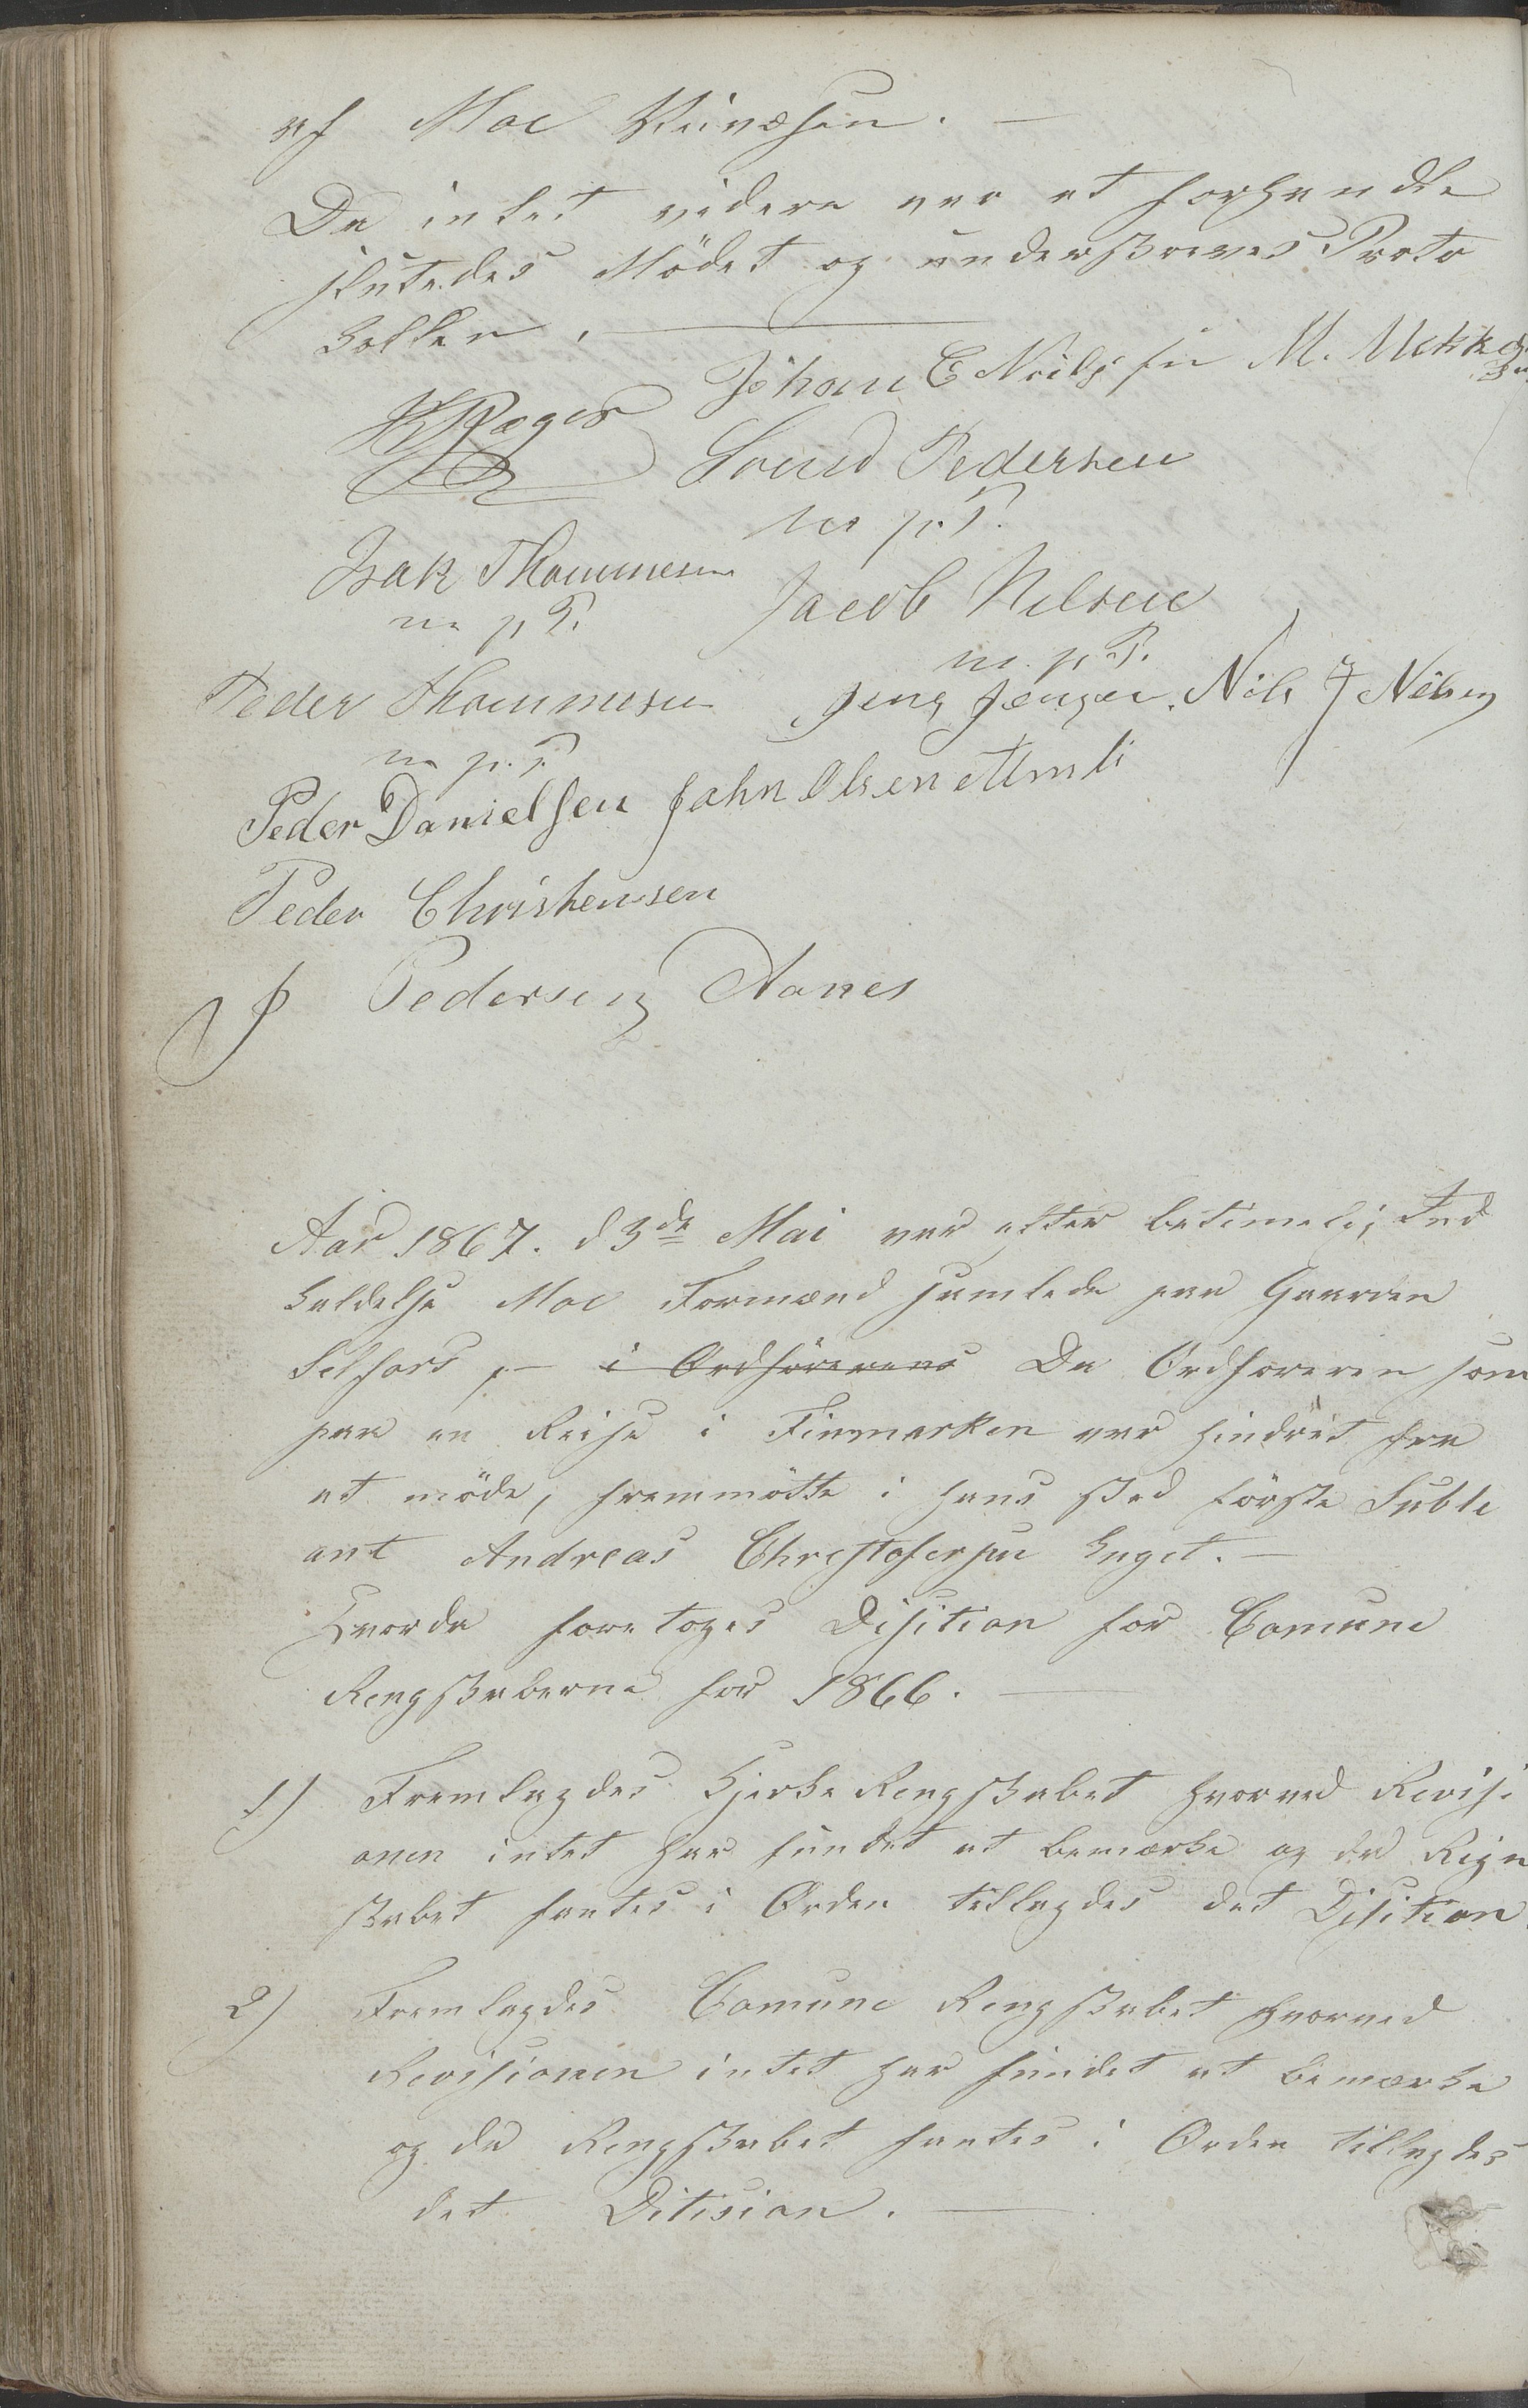 af Moe Veivæsen. —
Da intet videre var at forhandle
sluttedes Mödet og underskreves Proto
kollen. —
Johan E Nils sen M.
Hager
Lound Pedersen
m p. P.
Isak Thommesen
m p P.
Jacob Nilsen
m. p. P.
Peder Thommesen Jens Jenssen. Nils J Nilsen
m p. P.
Peder Danielsen John Olsen Almli
Peder Christensen
J Pedersen Aanes
Aar 1867. d 3de Mai var efter betimelig Ind
kaldelse Moe Formænd samlede paa Gaarden
Selfors, – i Ordförerens Da Ordforeren som
paa en Reise i Finmarken var hindret fra
at möde, fremmötte i hans sted förste Suble
ant Andreas Chrestofersen Enget. —
Hvorda foretoges Disition for Comune
Rengskaberne for 1866. —
1) Fremlagdes Kjerke Rengskabet hvorved Revisi
onen intet har fundet at bemærke og da Regn
skabet fantes i Orden tillagdes det Disition.
2) Fremlagdes Comune Rengskabet hvorved
Revisionen intet har fundet at bemærke
og da Rengskabet fantes i Orden tillagdes
det Ditision. —